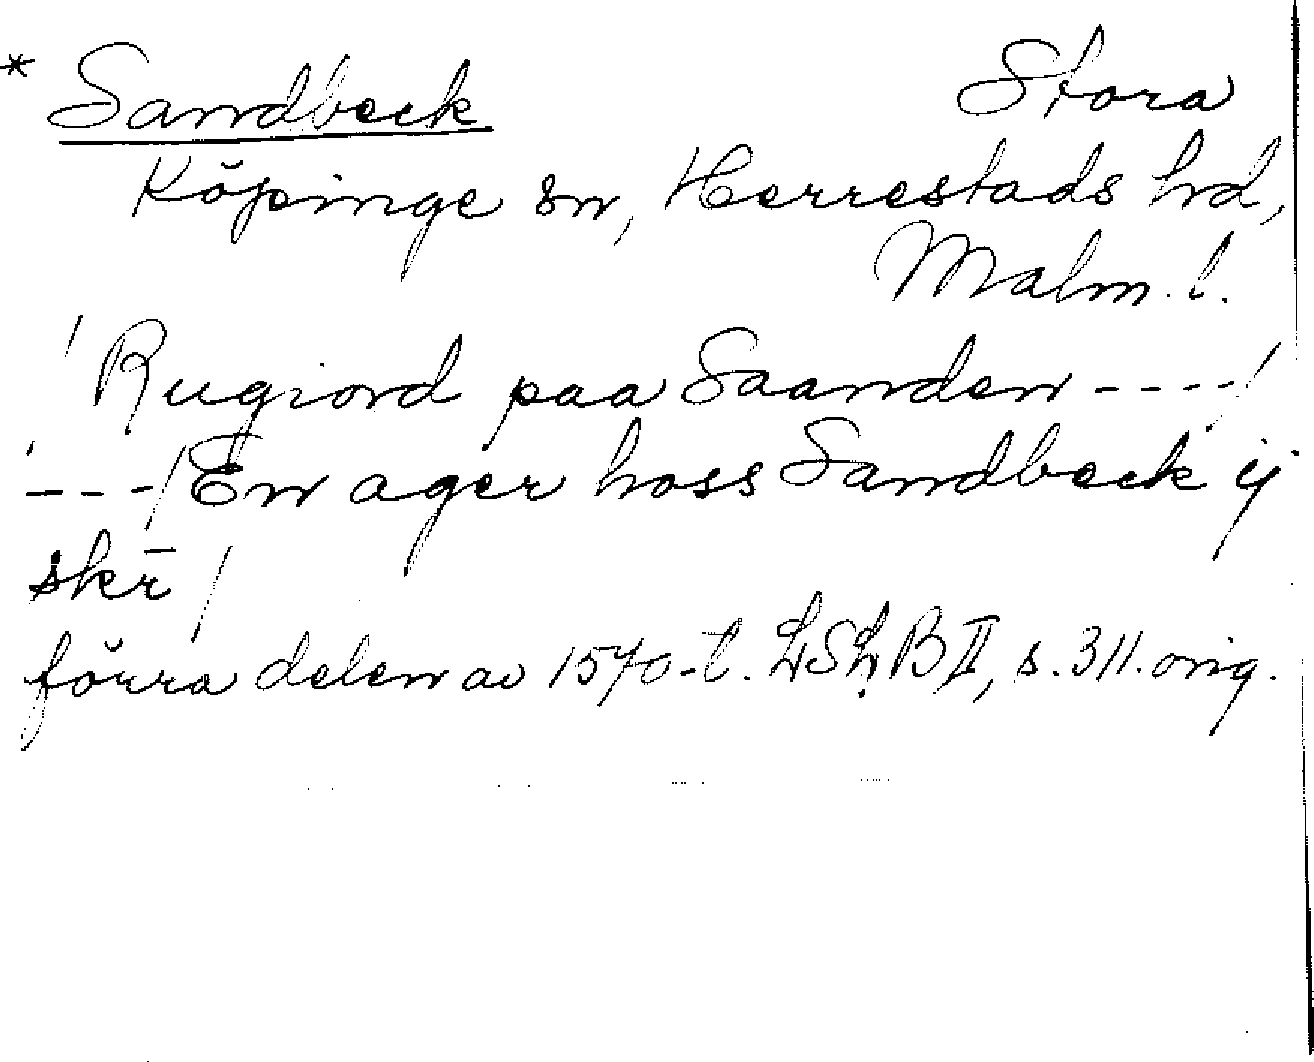 * Sandbeck Stora
Köpinge sn, Herrestads hd,
Malm. l.
/ Rugiord paa Saanden ----/
---/ En ager hoss Sandbeck ij
skr̄ /
förra delen av 1570-t. LSLB II, s. 311. orig.